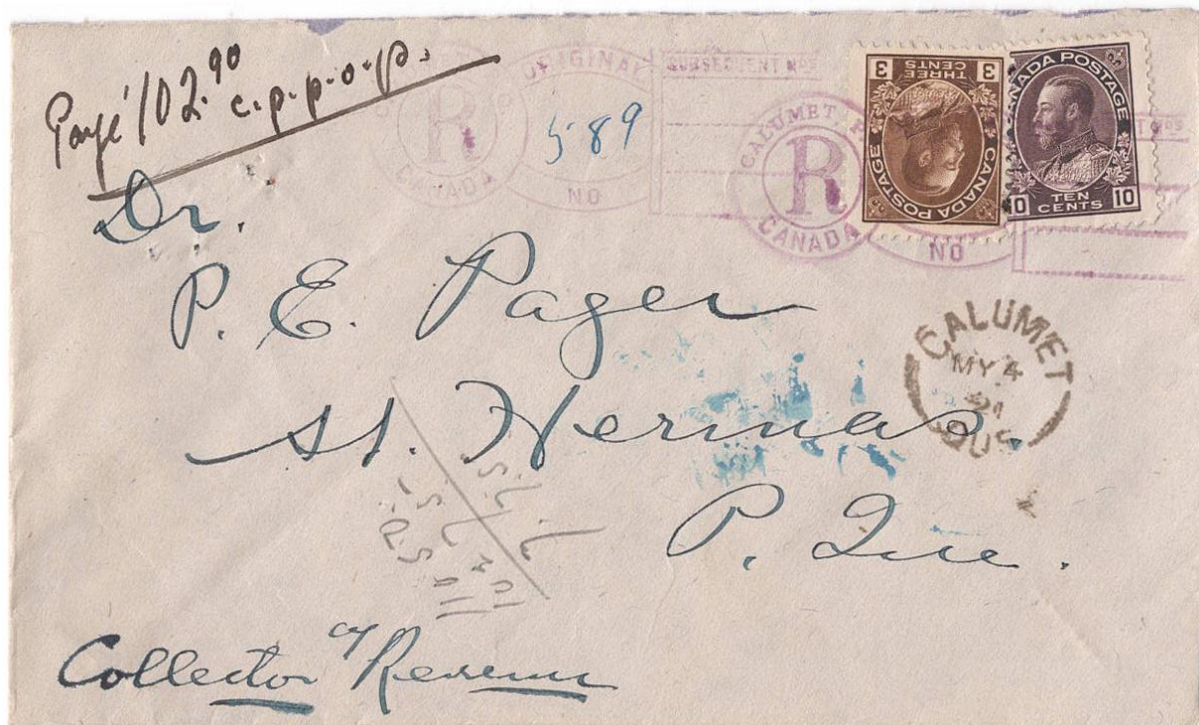 Payé 102.90
c.p.p.o.p.
R
CANADA
ORIGINAL
NO
589
SUBSEQUENT Nos
CALUMET, P
R
CANADA
NO
Nos
THREE
CENTS
3
3
CANADA POSTAGE
CANADA POSTAGE
TEN
CENTS
10
10
Dr.
P. E. Pager
St. Hermas.
P. Que.
CALUMET
MY 4
21
QUE
Collector of Revenue